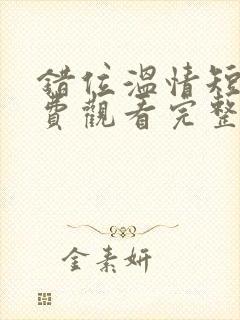 錯位溫情短
費觀看完整
金素妍